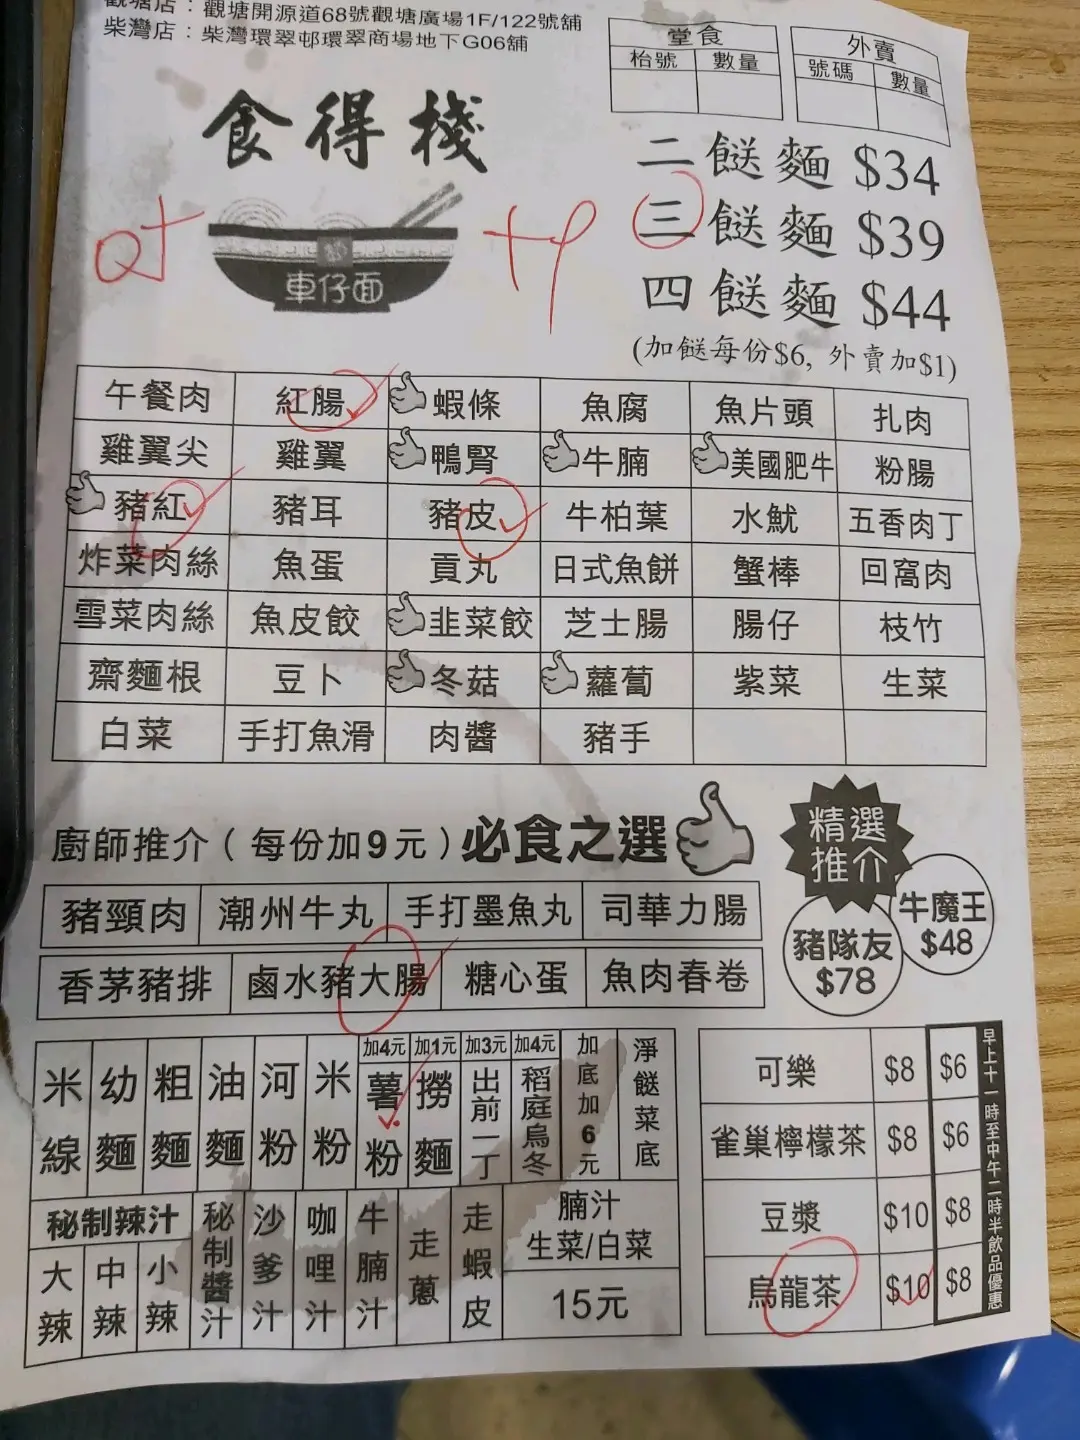 觀塘店：觀塘開源道68號觀塘廣場1F/122號舖
柴灣店：柴灣環翠邨環翠商場地下G06舖
堂食
枱號 數量
外賣
號碼 數量
食得棧
車仔面
二餸麵 $34
三餸麵 $39
四餸麵 $44
(加餸每份$6, 外賣加$1)
午餐肉 紅腸 蝦條 魚腐 魚片頭 扎肉
雞翼尖 雞翼 鴨腎 牛腩 美國肥牛 粉腸
豬紅 豬耳 豬皮 牛柏葉 水魷 五香肉丁
炸菜肉絲 魚蛋 貢丸 日式魚餅 蟹棒 回窩肉
雪菜肉絲 魚皮餃 韭菜餃 芝士腸 腸仔 枝竹
齋麵根 豆卜 冬菇 蘿蔔 紫菜 生菜
白菜 手打魚滑 肉醬 豬手
廚師推介（每份加9元）必食之選
精選
推介
牛魔王
$48
豬隊友
$78
豬頸肉 潮州牛丸 手打墨魚丸 司華力腸
香茅豬排 鹵水豬大腸 糖心蛋 魚肉春卷
米線
幼麵
粗麵
油麵
河粉
米粉
加4元
薯粉
加1元
撈麵
加3元
出前一丁
加4元
稻庭烏冬
加底加6元
淨餸菜底
秘制辣汁
大辣
中辣
小辣
秘制醬汁
沙爹汁
咖哩汁
牛腩汁
走蔥
走蝦皮
腩汁
生菜/白菜
15元
可樂 $8 $6
雀巢檸檬茶 $8 $6
豆漿 $10 $8
烏龍茶 $10 $8
早上十一時至中午二時半飲品優惠